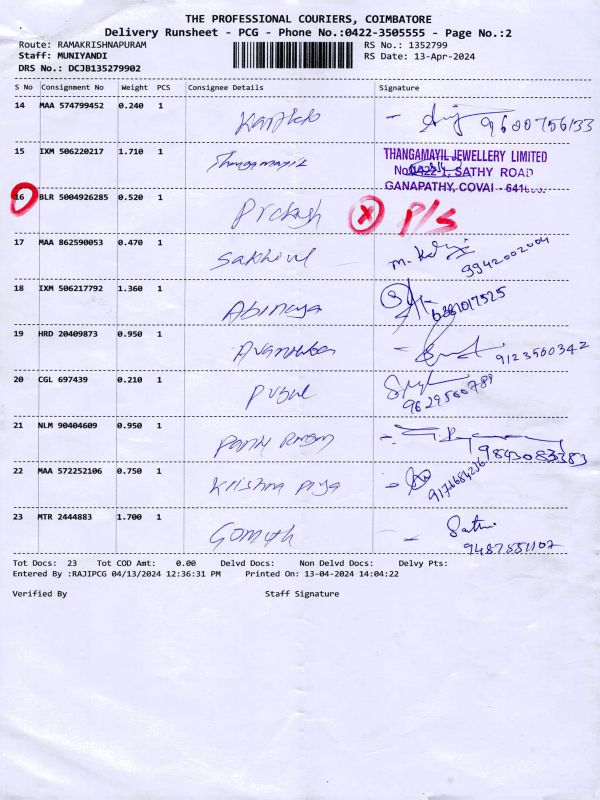 THE PROFESSIONAL COURIERS, COIMBATORE
Delivery Runsheet - PCG - Phone No.:0422-3505555 - Page No.:2
Route: RAMAKRISHNAPURAM RS No.: 1352799
Staff: MUNIYANDI RS Date: 13-Apr-2024
DRS No.: DCJB135279902
S No Consignment No Weight PCS Consignee Details Signature
14 MAA 574799452 0.240 1 9600756133
15 IXM 506220217 1.710 1 Thangamayil THANGAMAYIL JEWELLERY LIMITED
SATHY ROAD
GANAPATHY, COVAI -
16 BLR 5004926285 0.520 1 Prakash X P/S
17 MAA 862590053 0.470 1 Sakhivel 9942002004
18 IXM 506217792 1.360 1 Abinaya 6381017525
19 HRD 20409873 0.950 1 9123560342
20 CGL 697439 0.210 1 9629560789
21 NLM 90404609 0.950 1 9843083383
22 MAA 572252106 0.750 1 Krishna Priya
23 MTR 2444883 1.700 1 Gomath
Tot Docs: 23 Tot COD Amt: 0.00 Delvd Docs: Non Delvd Docs: Delvy Pts:
Entered By :RAJIPCG 04/13/2024 12:36:31 PM Printed On: 13-04-2024 14:04:22
Verified By Staff Signature